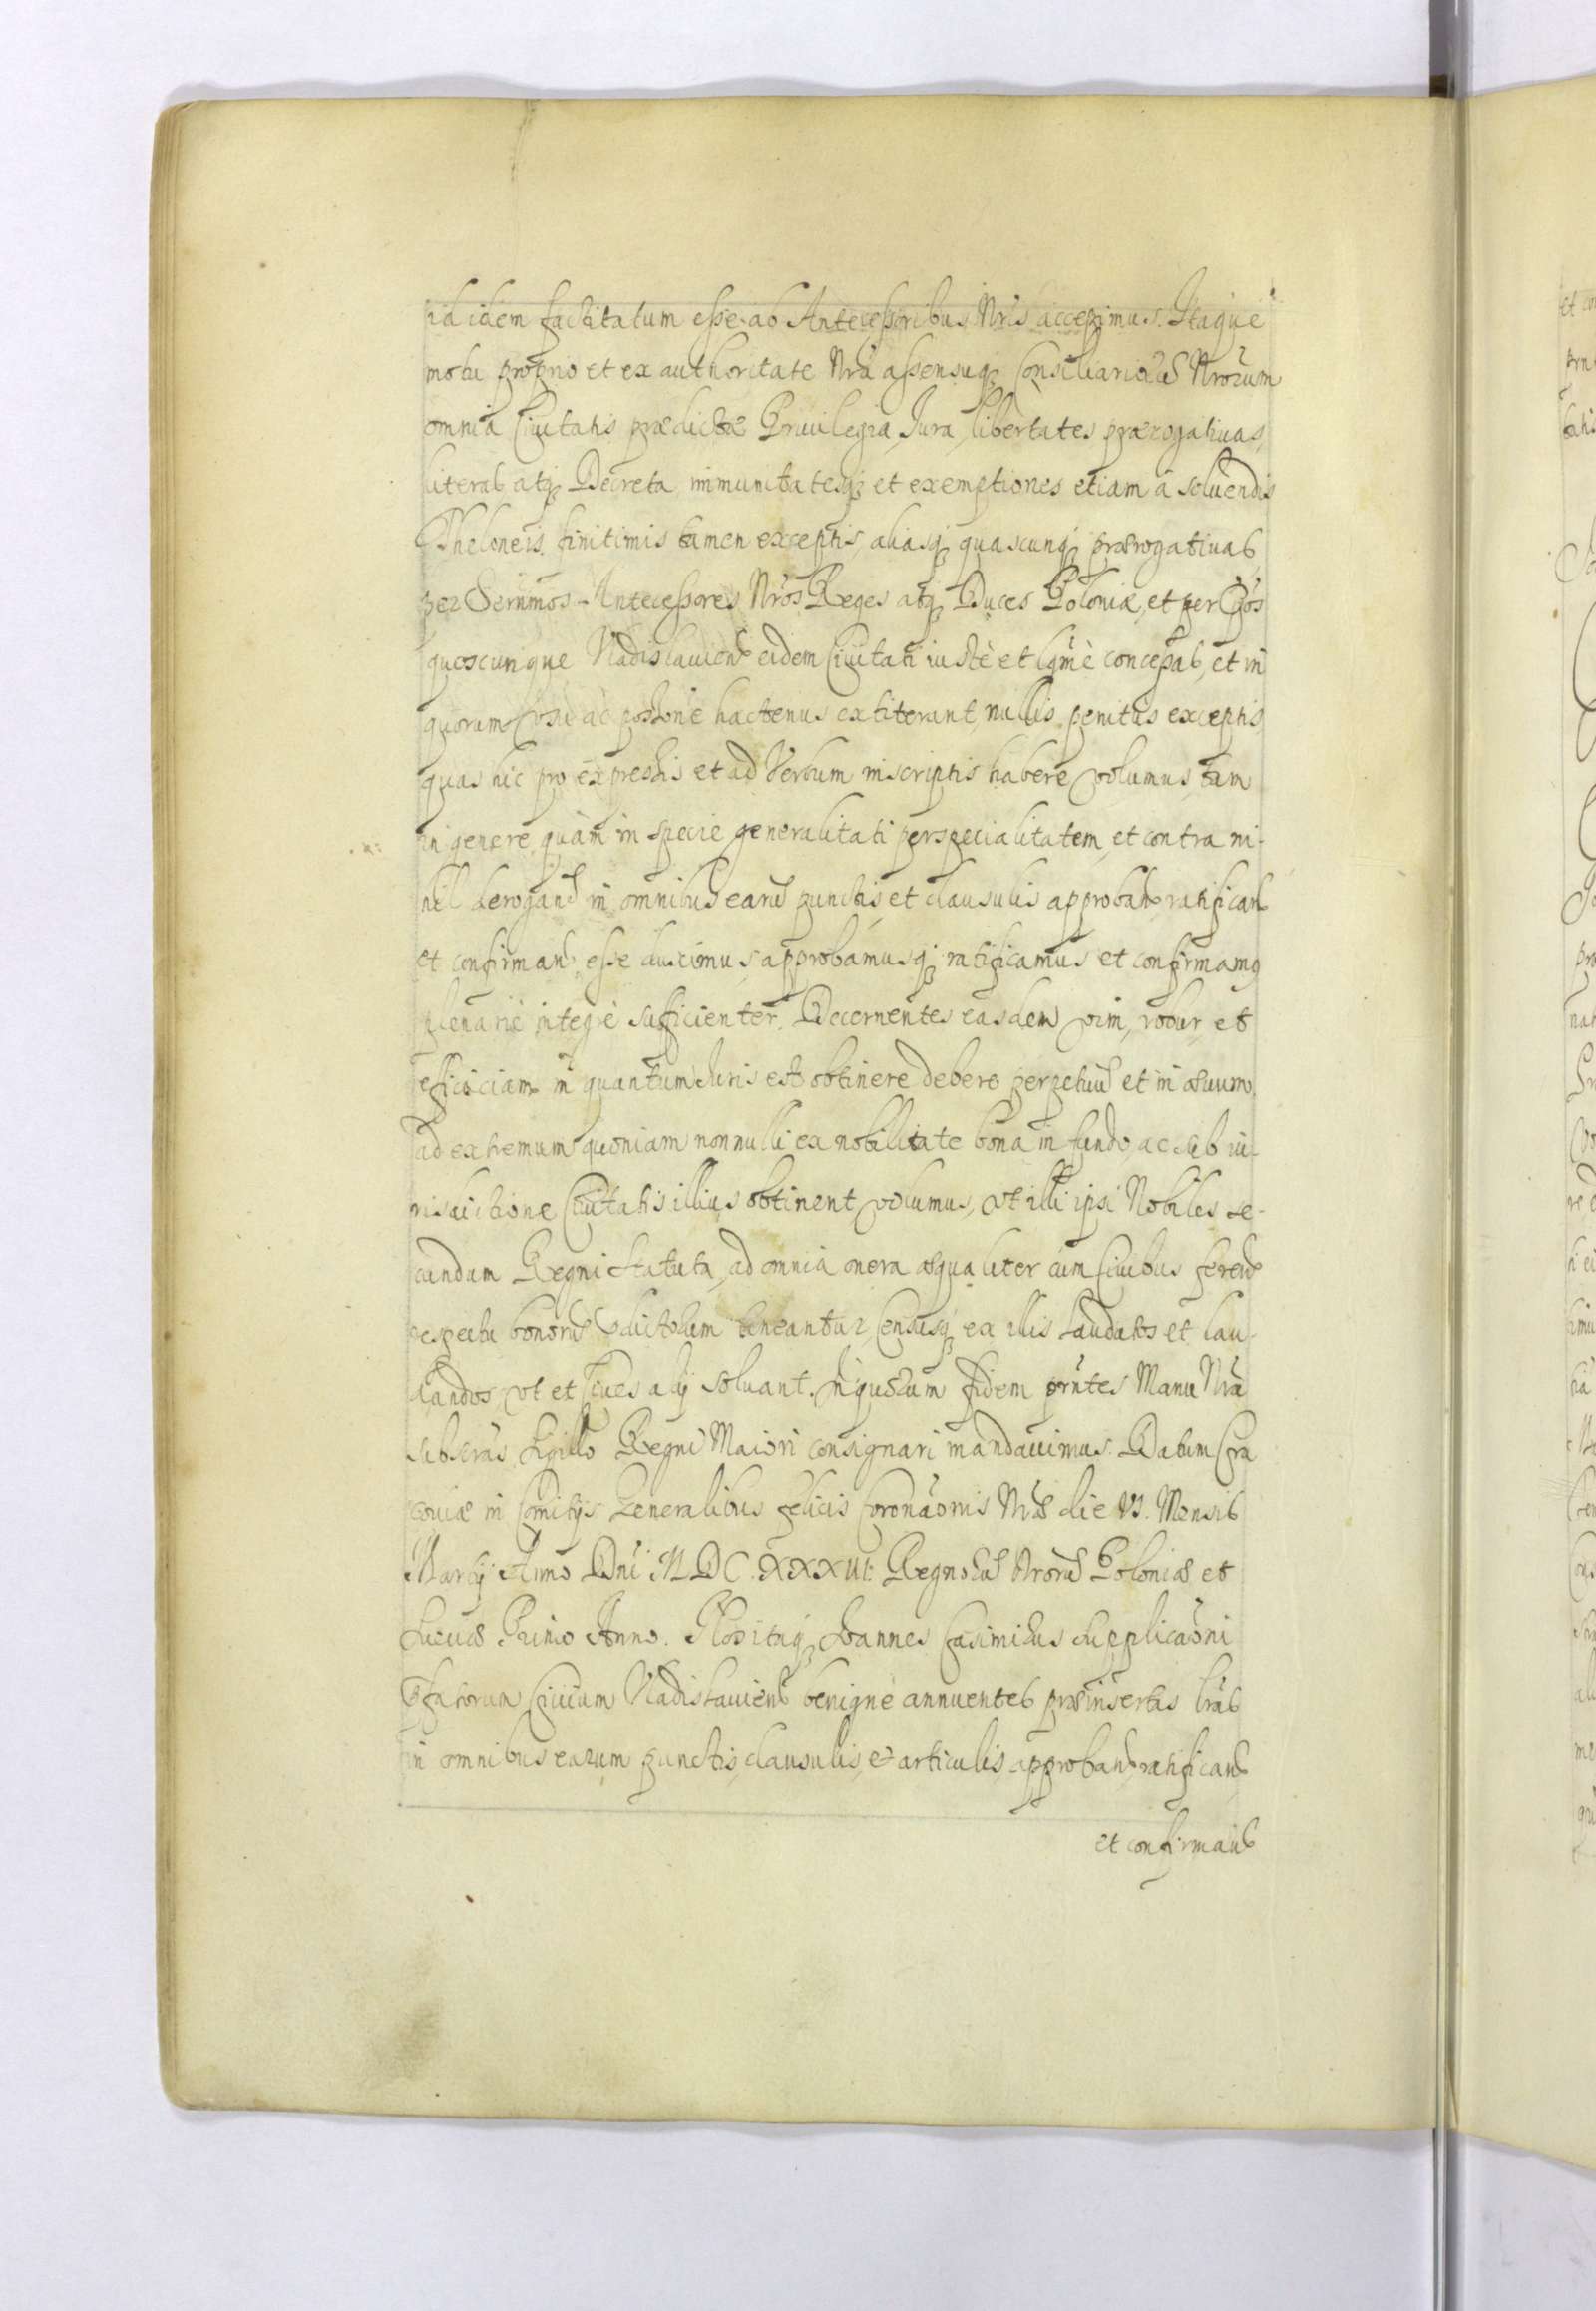 id idem factitatum esse ab Antecessoribus Nrīs accepimus. Itaque
motu proprio et ex authoritate Nrā assensuq; Consiliariorū Nrorum
omnia Ciuitatis prædictæ Priuilegia, Jura, libertates, prærogatiuas,
literas, atq; Decreta, immunitatesq; et exemptiones etiam à soluendis
Theloneis, finitimis tamen exceptis, aliasq; quascunq; prærogatiuas,
per Sermos Antecessores Nrōs Reges atq; Duces Poloniæ, et per Ep̄os
quoscunque Vladislauień eidem Ciuitati iustè et lgmè concessas, et in
quorum vsu ac possone hactenus extiterant, nullis penitus exceptis
quas hic pro expressis et ad Verbum inscriptis habere volumus, tam
in genere, quàm in specie generalitati per specialitatem, et contra ni-
hil derogand in omnibus earū punctis et clausulis approband ratificand
et confirmand esse duximus, approbamusq; ratificamus et confirmamq
plenariè integrè sufficienter. Decernentes easdem vim, robur, et
efficaciam in quantum Juris est obtinere debere perpetuū et in æuum.
ad extremum quoniam nonnulli ex nobilitate bona in fundo, ac sub iu-
risdictione Ciuitatis illius obtinent, volumus, vt illi ipsi Nobiles se-
cundum Regni statuta, ad omnia onera æqualiter cum Ciuibus ferend
respectu bonorū pdictorum teneantur, Censusq; ex illis laudatos et lau-
dandos, vt et Ciues alij soluant. In quorum fidem prntes Manu Nrā
subscras, Sigillo Regni Maiori consignari mandauimus. Datum Cra
couiæ in Comitijs Generalibus felicis Coronaōnis Nræ die VI. Mensis
Martij Anno Dni MDC.XXXIII: Regnorū Nrorū Poloniæ et
Sueciæ Primo Anno. Nos itaq; Joannes Casimirus supplicaōni
pfatorum Ciuium Vladislauień benignè annuentes præinsertas lrās
in omnibus earum punctis, clausulis, et articulis, approband ratificand
et confirmand